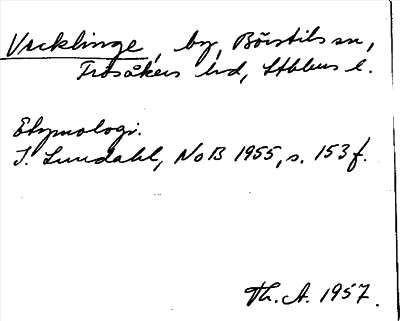 Vecklinge, by, Börstils sn,
Frösåkers hd, Sthlms l.
Etymologi.
I. Lundahl, NoB 1955, s. 153 f.
Th. A. 1957.